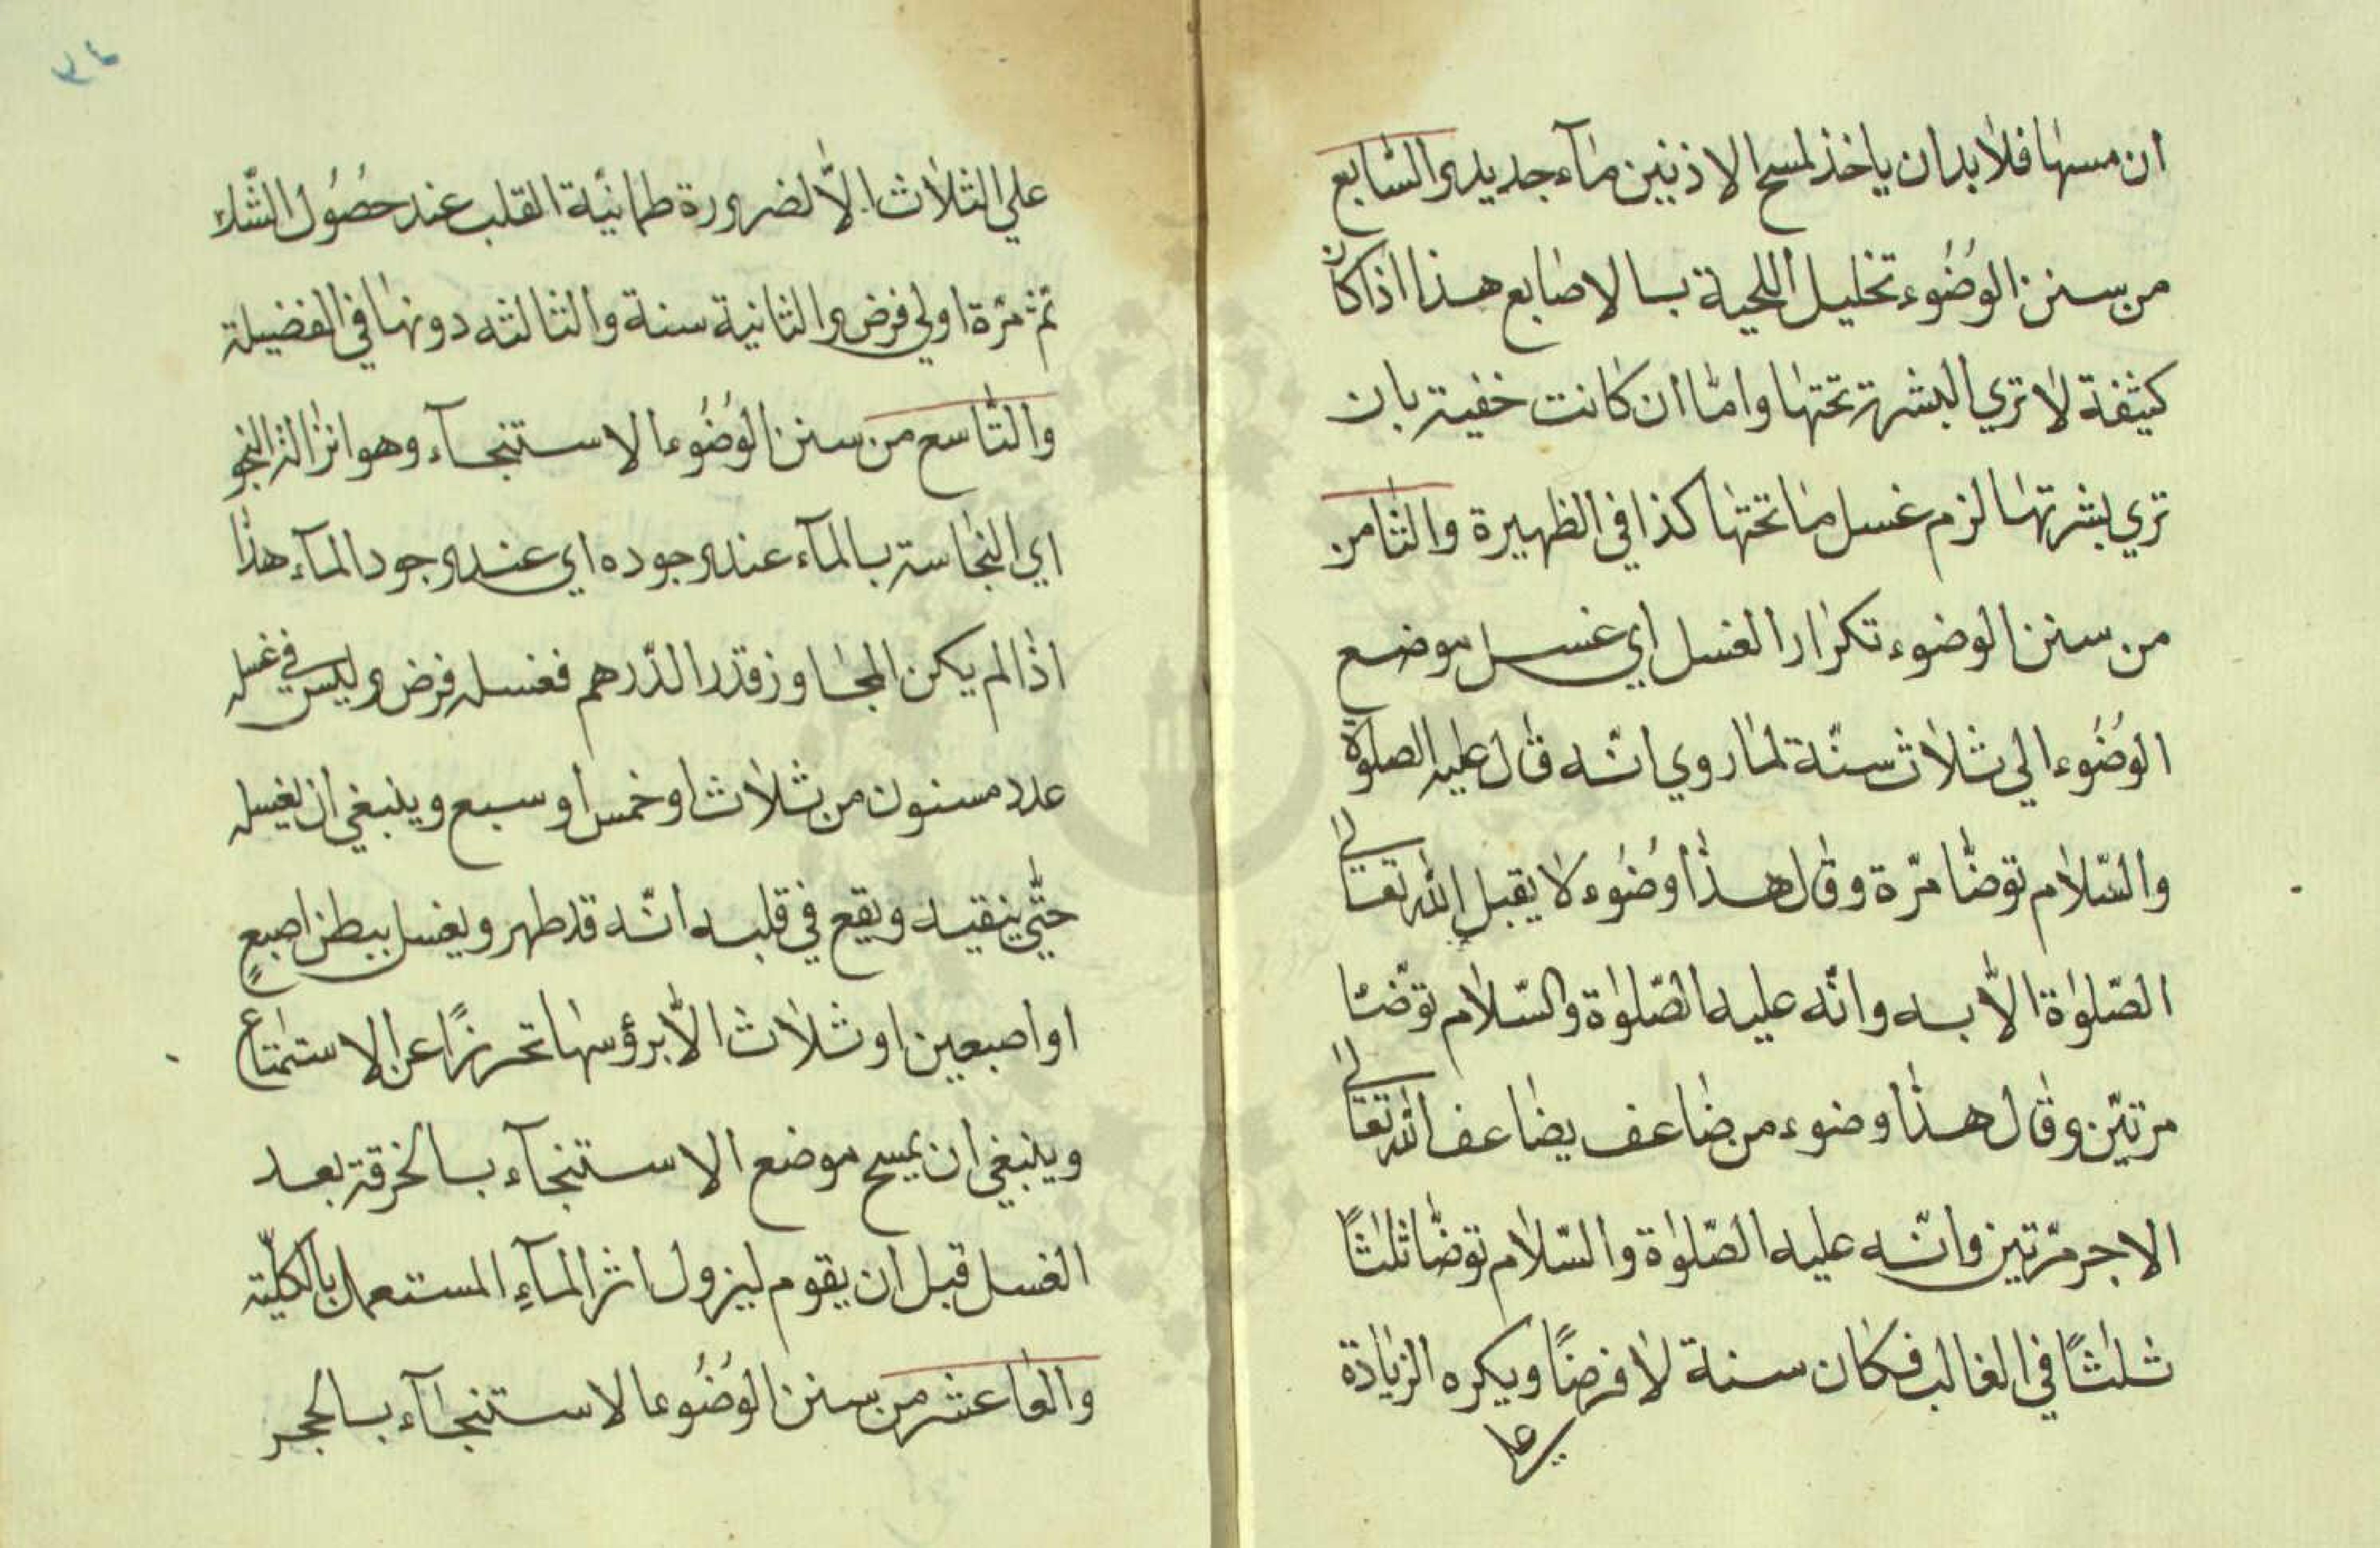 ان مسها فلا بد ان ياخذ لمسح الاذنين مآء جديد والسّابع
من سنن الوضُوء تخليل اللحية بالاصابع هذا اذا كان
كثيفة لا تري البشرة تحتها واما ان كانت خفية بان
تري بشرتها لزم غسل ما تحتها كذا في الظهيرة والثامن
من سنن الوضوء تكرار الغسل اي غسل موضع
الوضُوء الي ثلاث سنّة لما روي انّه قال عليه الصلوة
والسّلام توضّا مرّة وقال هذا وضُوء لا يقبل الله تعالي
الصّلوة الّا به وانّه عليه الصّلوة والسّلام توضّا
مرتيّن وقال هذا وضوء من ضاعف يضاعف الله تعالي
الاجر مرّتين وانّه عليه الصّلوة والسّلام توضّا ثلثًا
ثلثًا في الغالب فكان سنة لا فرضًا ويكره الزيادة
علي
علي الثلاث الّا لضرورة طمانيّة القلب عند حصُول الشّك
ثمّ مرّة اولي فرض والثانية سنة والثالثه دونها في الفضيلة
والتّاسع من سنن الوضُوء الاستنجآء وهو ازالة النجو
اي النجاسة بالمآء عند وجوده اي عند وجود المآء هذا
اذا لم يكن المجاوز قدر الدّرهم فغسله فرض وليس في غسله
عدد مسنون من ثلاث او خمس او سبع وينبغي ان يغسله
حتّي ينقيه ويقع في قلبه انّه قد طهر ويغسل ببطن اصبعٍ
او اصبعين او ثلاث الّا برؤسها تحرزًا عن الاستمتاع
وينبغي ان يمسح موضع الاستنجآء بالخرقة بعد
الغسل قبل ان يقوم ليزول اثر المآءِ المستعمل بالكليّة
والعاشر من سنن الوضُوء الاستنجآء بالحجر